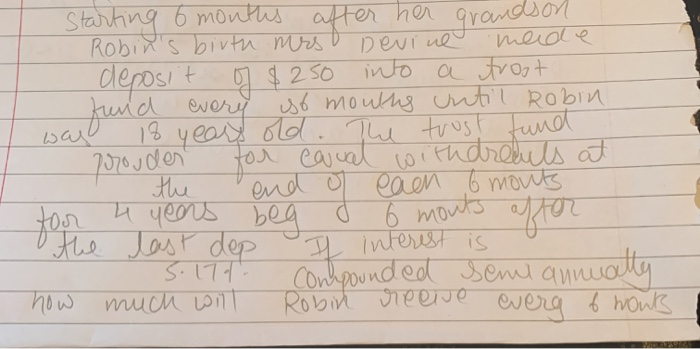 Starting 6 months after her grandson
Robin's birth Mrs Devine made
deposit of $250 into a trost
fund every 6 mouths until Robin
was 18 years old. The trust fund
provder for equal withdrawls at
the end of each 6 monts
for 4 years beg 6 monts after
the last dep If interest is
5.17%. Compounded semi annually
how much will Robin receive everg 6 monts